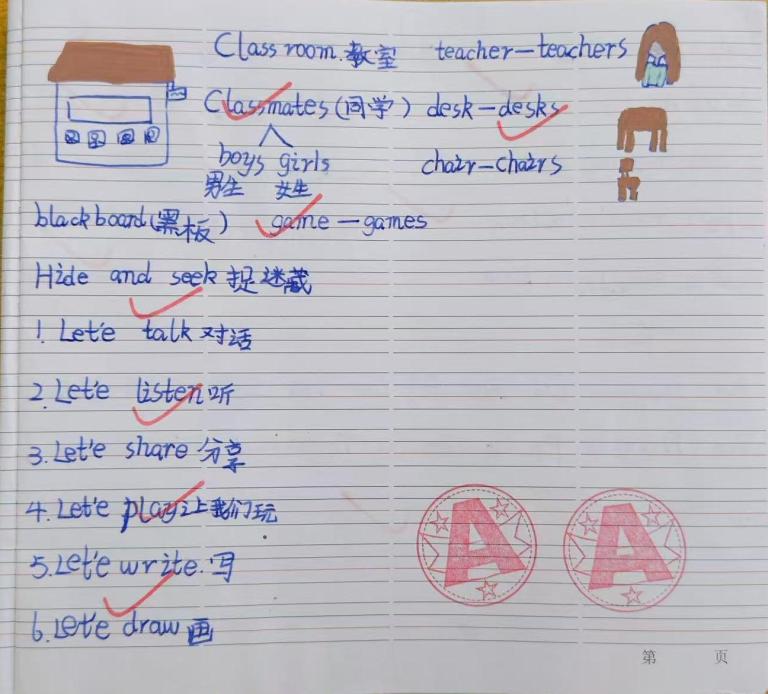 Class room.教室 teacher—teachers
Classmates(同学) desk—desks
boys girls chair—chairs
男生 女生
blackboard(黑板) game—games
Hide and seek 捉迷藏
1. Let'e talk 对话
2. Let'e listen 听
3. Let'e share 分享
4. Let'e play 让我们玩
5. Let'e write. 写
6. Let'e draw 画
A A
第 页